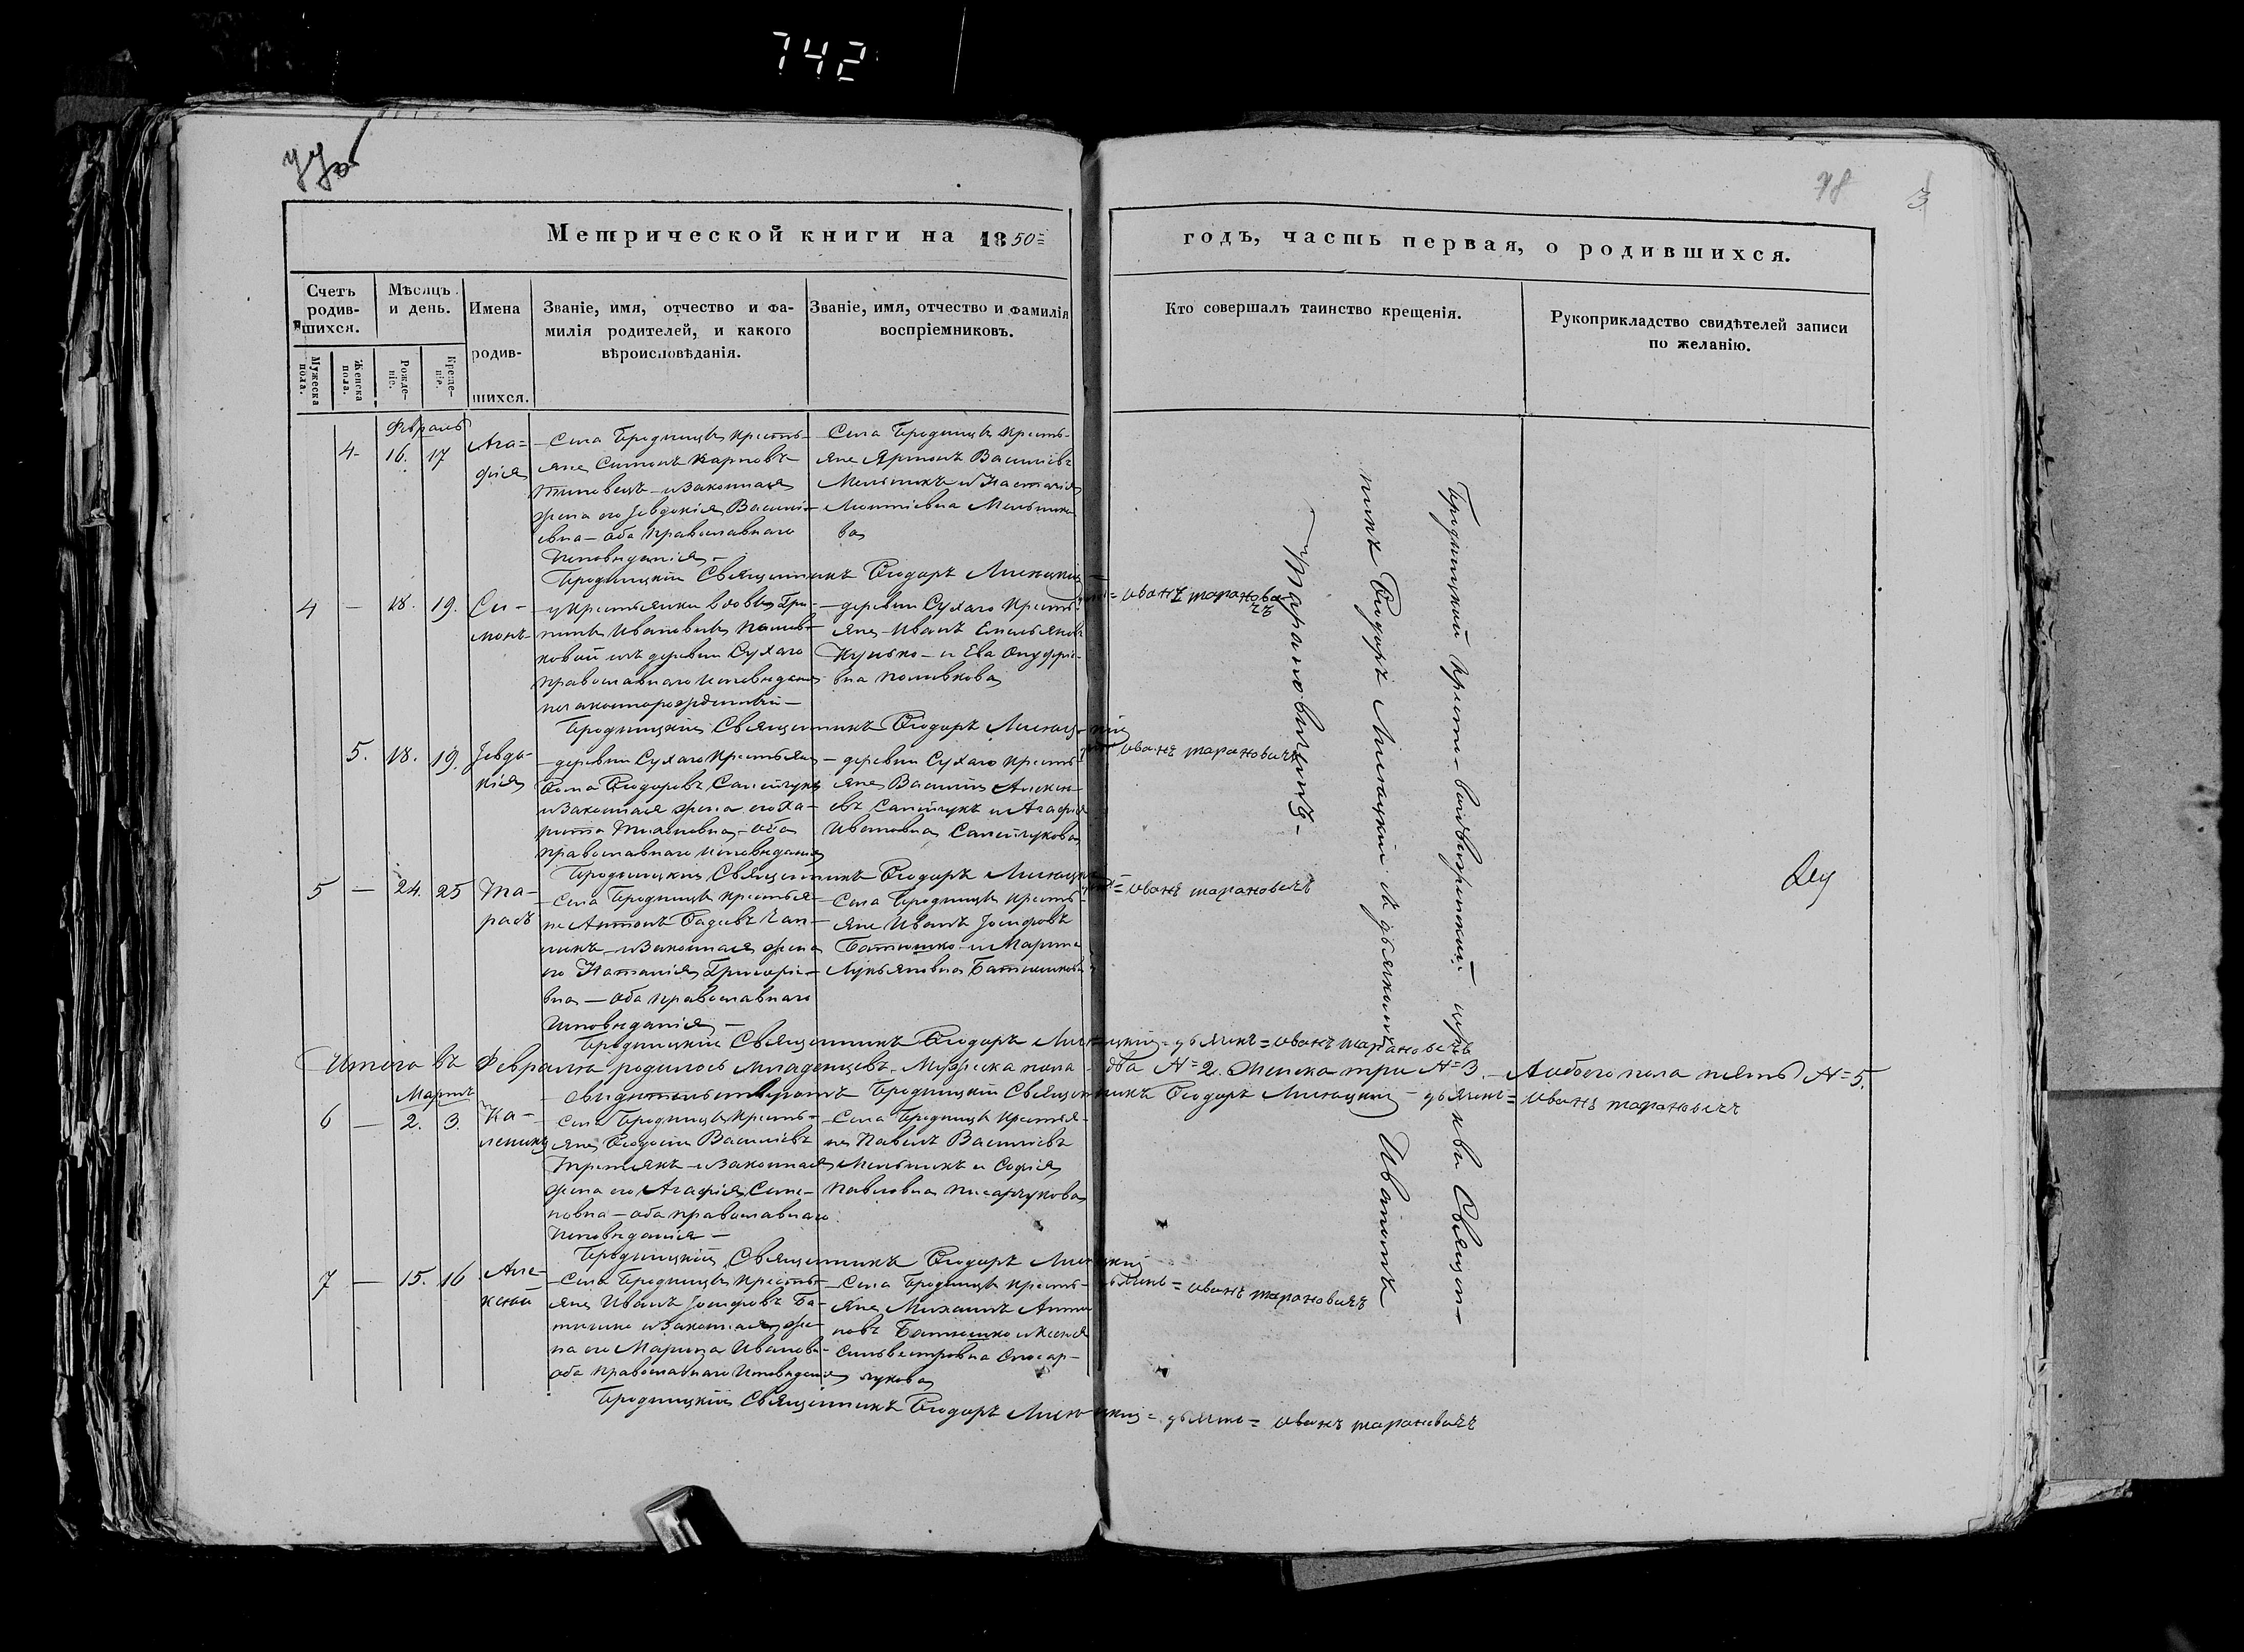 742
78
3
Метрической книги на 1850=
годъ, часть первая, о родившихся.
Счетъ родившихся.
Мужеска пола.
Женска пола.
Мѣсяцъ и день.
Рожденіе.
Крещеніе.
Имена родившихся.
Званіе, имя, отчество и фамилія родителей, и какого вѣроисповѣданія.
Званіе, имя, отчество и фамилія воспріемниковъ.
Кто совершалъ таинство крещенія.
Рукоприкладство свидѣтелей записи по желанію.
Февраль
4- 16. 17 Ага=
фія
Села Бродницы кресть-
яне Симонъ Карповъ
и законная
жена его Іевдокія Василі-
евна – оба православнаго
исповѣданія –
Села Бродницы кресть-
яне Артонъ Василіевъ
Мельникъ и Настасія
Леонтіевна Мельнико
ва
Бродницкій Священникъ Ѳеодоръ
= иванъ таранови
чъ
4 – 18. 19. Си-
монъ
у крестьянки вдовы
Ивановны
ковой изъ деревни Сухаго
православнаго исповѣданія
незаконнорожденный –
– деревни Сухаго кресть-
яне Иванъ Емельяновъ
Кунько – и Ева Онуфрі-
вна Поливкова
Бродницкій Священникъ Ѳеодоръ
иванъ тарановичъ
5. 18. 19. Іевдо-
кія
– деревни Сухаго крестьяне
Ѳома Ѳеодоровъ
и законная жена его Ха-
ритта Тихоновна – оба
православнаго исповѣданія
– деревни Сухаго кресть-
яне Василій Алексі-
евъ и Агафія
Ивановна
Бродницкій Священникъ Ѳеодоръ
= иванъ тарановичъ
5 – 24. 25 Та-
расъ
– Села Бродницы крестья-
не Антонъ Ѳадѣевъ
и законная жена
его Наталія Григорі-
вна – оба православнаго
исповѣданія –
– Села Бродницы кресть-
яне Иванъ Іосифовъ
Батюшко и Марина
Лукьяновна Батюшкова
Бродницкій Священникъ Ѳеодоръ – дьячекъ = иванъ тарановичъ
Итого въ Февралѣ родилось младенцевъ Мужеска пола два №=2. Женска три №=3. – А обоего пола пять №=5.
Бродницкій Священникъ Ѳеодоръ – дьячекъ = иванъ тарановичъ
Мартъ
6 – 2. 3. Ка-
леникъ
Села Бродницы кресть-
яне Ѳеодосій Василіевъ
Третьякъ и законная
жена его Агафія Семе-
новна – оба православнаго
исповѣданія –
– Села Бродницы крестья-
не Павелъ Василіевъ
Мельникъ и Софія
Павловна Писарчукова
Бродницкій Священникъ Ѳеодоръ
= иванъ тарановичъ
7 – 15. 16 Але-
ксій
– Села Бродницы кресть-
яне Иванъ Іосифовъ Ба-
тюшко и законная же-
на его Марина Иванов-
оба православнаго исповѣданія
– Села Бродницы кресть-
яне Михаилъ Анто
новъ Батюшко и Ксенія
Сильвестровна Слюсар-
чукова
Бродницкій Священникъ Ѳеодоръ = дьячекъ = иванъ тарановичъ
Бродницкой Кресто-воздвиженской церкви Священ-
никъ Ѳеодоръ съ дьячкомъ Иваномъ
Тарановичемъ –